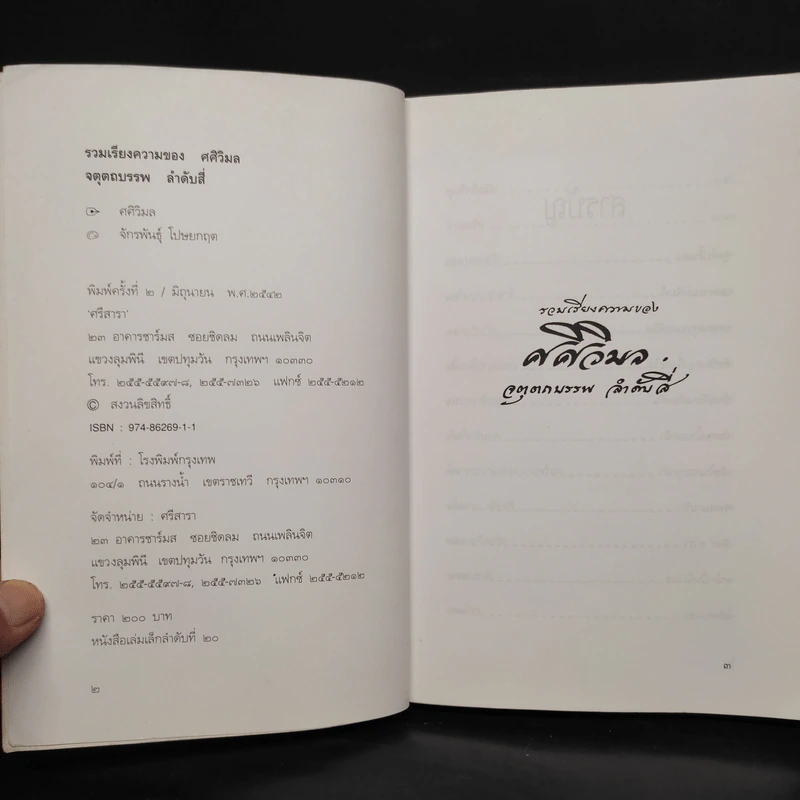 รวมเรียงความของ ศศิวิมล
จตุตถบรรพ ลำดับสี่
ศศิวิมล
จักรพันธุ์ โปษยกฤต
พิมพ์ครั้งที่ ๒ / มิถุนายน พ.ศ.๒๕๔๒
'ศรีสารา'
๒๓ อาคารชาร์มส ซอยชิดลม ถนนเพลินจิต
แขวงลุมพินี เขตปทุมวัน กรุงเทพฯ ๑๐๓๓๐
โทร. ๒๕๕-๕๕๙๗-๘, ๒๕๕-๗๓๒๖ แฟกซ์ ๒๕๕-๕๒๑๒
© สงวนลิขสิทธิ์
ISBN : 974-86269-1-1
พิมพ์ที่ : โรงพิมพ์กรุงเทพ
๑๐๔/๑ ถนนรางน้ำ เขตราชเทวี กรุงเทพฯ ๑๐๓๑๐
จัดจำหน่าย : ศรีสารา
๒๓ อาคารชาร์มส ซอยชิดลม ถนนเพลินจิต
แขวงลุมพินี เขตปทุมวัน กรุงเทพฯ ๑๐๓๓๐
โทร. ๒๕๕-๕๕๙๗-๘, ๒๕๕-๗๓๒๖ แฟกซ์ ๒๕๕-๕๒๑๒
ราคา ๒๐๐ บาท
หนังสือเล่มเล็กลำดับที่ ๒๐
๒
รวมเรียงความของ
ศศิวิมล .
จตุตถบรรพ ลำดับสี่
๓